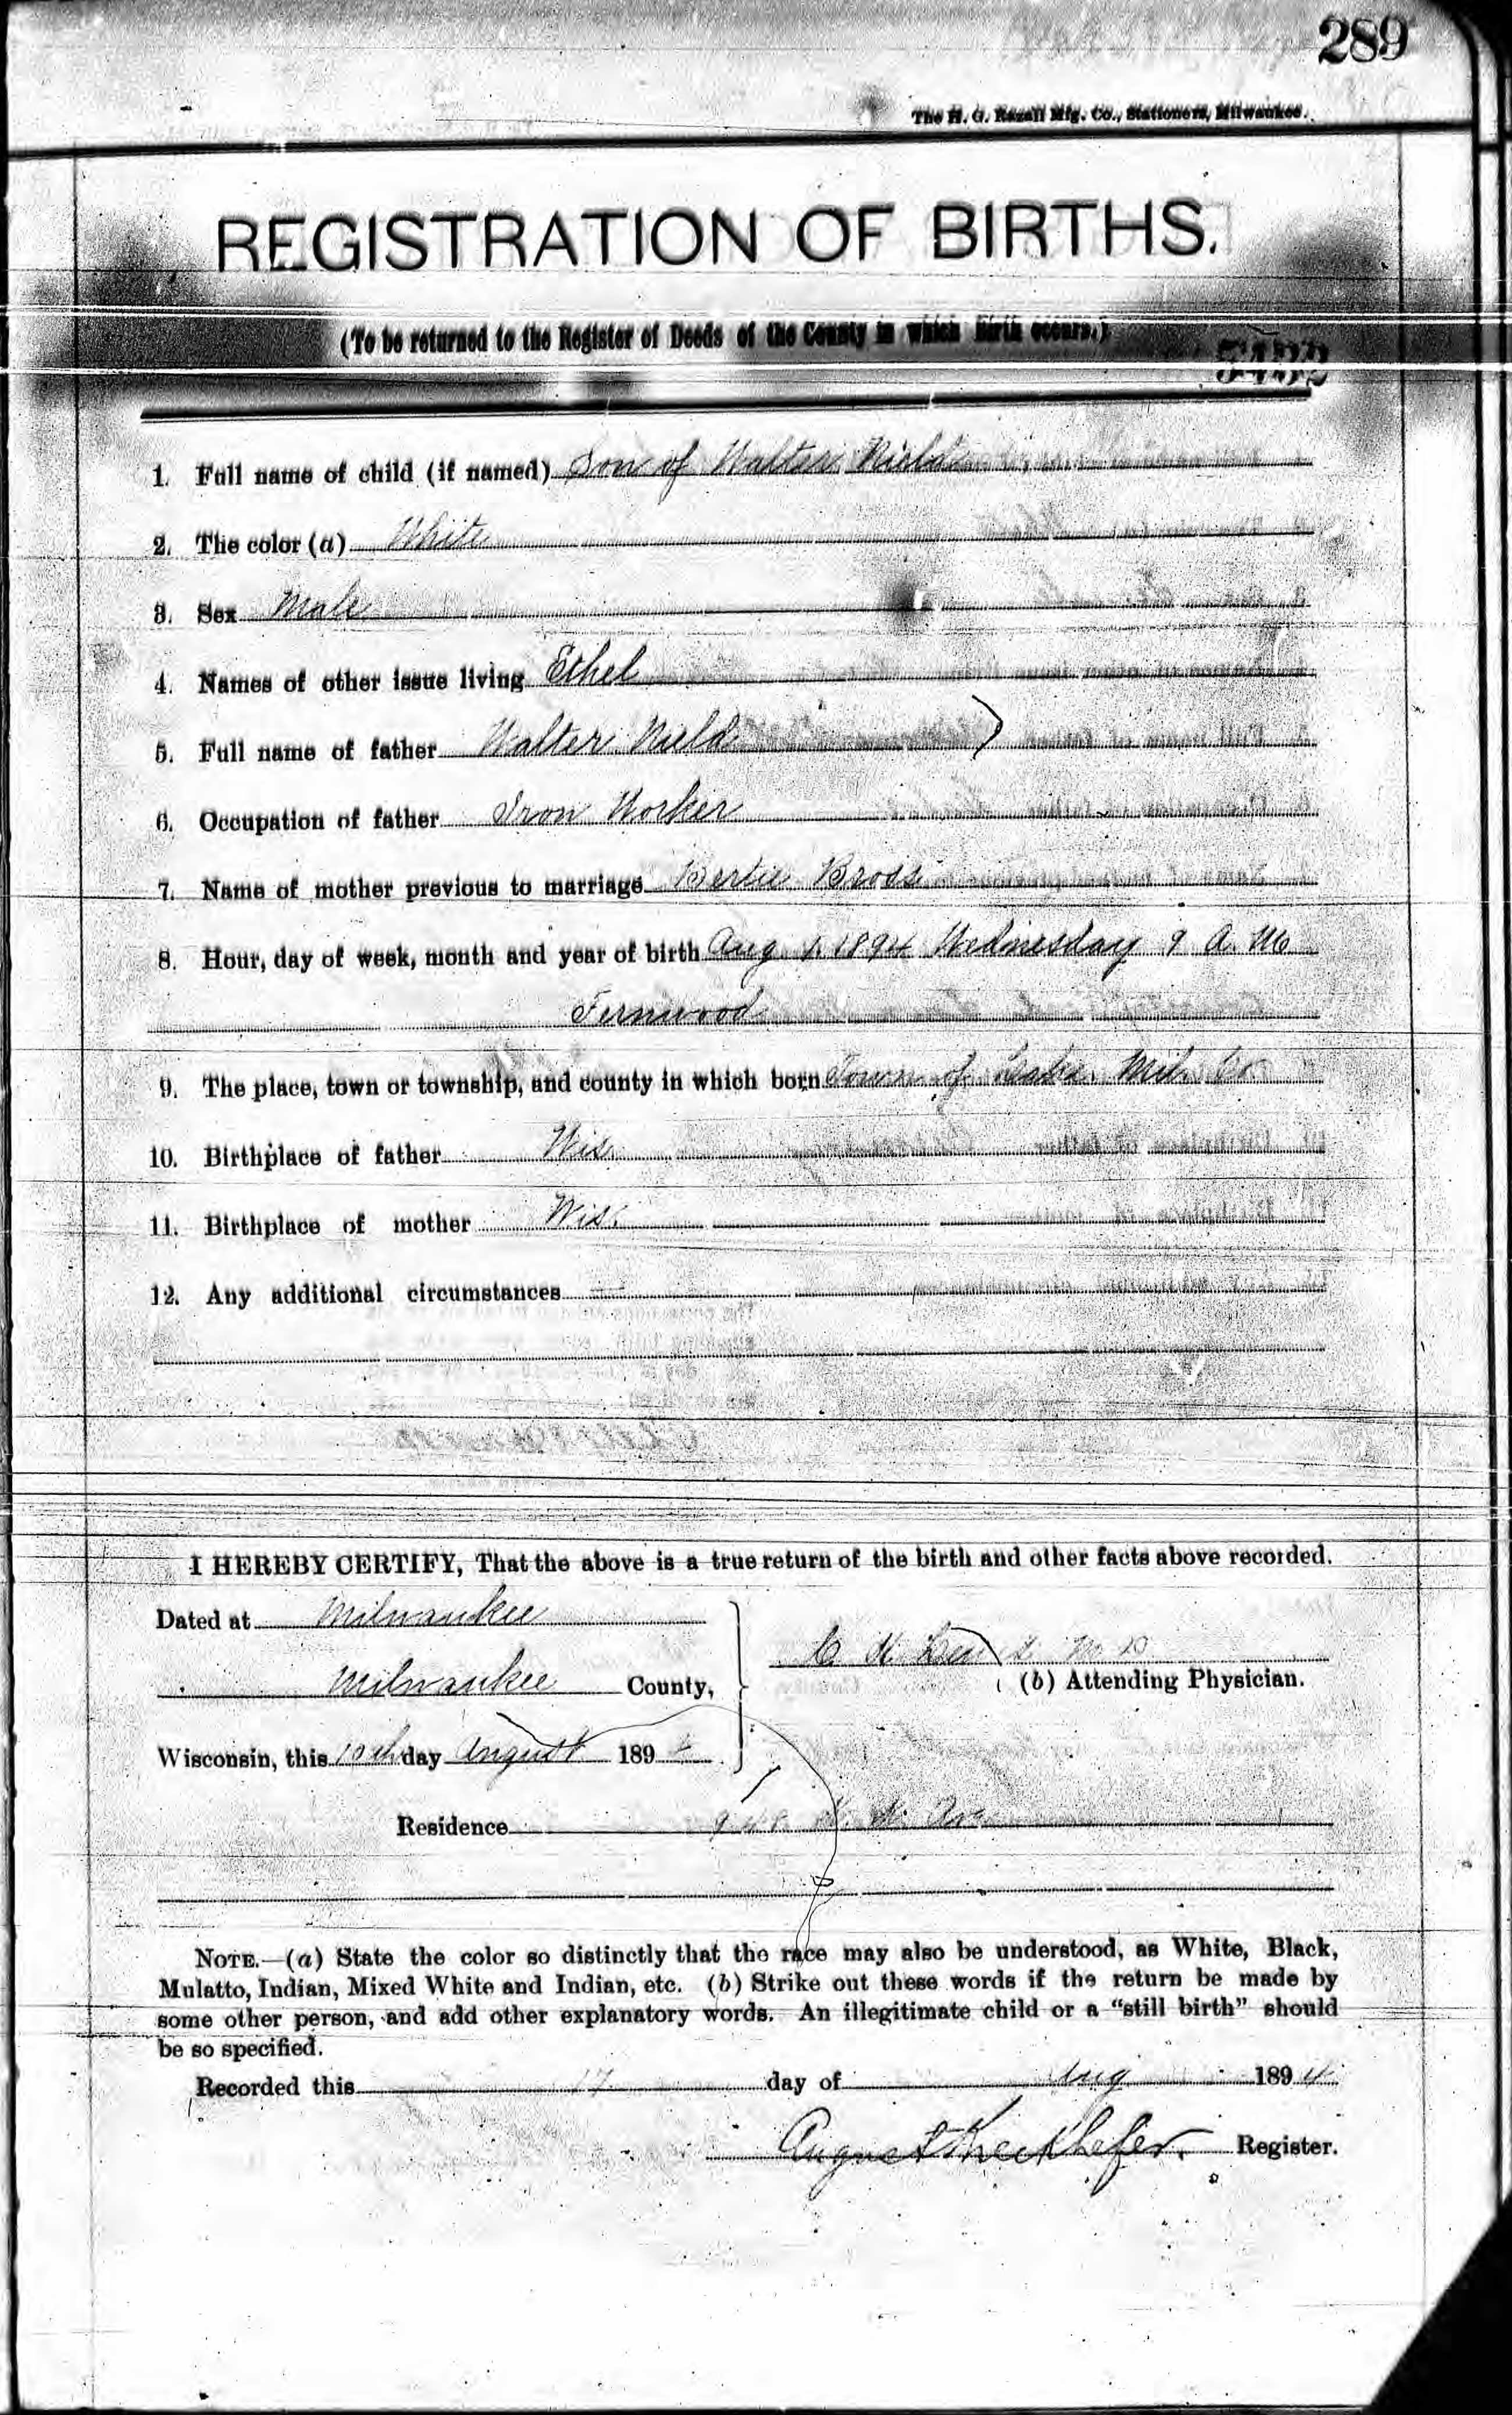 289
The H. G. Razall Mfg. Co., Stationers, Milwaukee.
REGISTRATION OF BIRTHS.
(To be returned to the Register of Deeds of the County in which birth occurs.)
1. Full name of child (if named) Son of Walter Nield
2. The color (a) White
3. Sex Male
4. Names of other issue living Ethel
5. Full name of father Walter Nield
6. Occupation of father Iron Worker
7. Name of mother previous to marriage Bertie Bross
8. Hour, day of week, month and year of birth Aug 1. 1894 Wednesday 9 A. M
Fernwood
9. The place, town or township, and county in which born Town of Lake. Mil. Co
10. Birthplace of father Wis.
11. Birthplace of mother Wis.
12. Any additional circumstances
I HEREBY CERTIFY, That the above is a true return of the birth and other facts above recorded.
Dated at Milwaukee
C. H. M D
Milwaukee County,
(b) Attending Physician.
Wisconsin, this 10th day August 1894
Residence Ave
NOTE.—(a) State the color so distinctly that the race may also be understood, as White, Black,
Mulatto, Indian, Mixed White and Indian, etc. (b) Strike out these words if the return be made by
some other person, and add other explanatory words. An illegitimate child or a "still birth" should
be so specified.
Recorded this 17 day of Aug 1894
August Kieckhefer. Register.